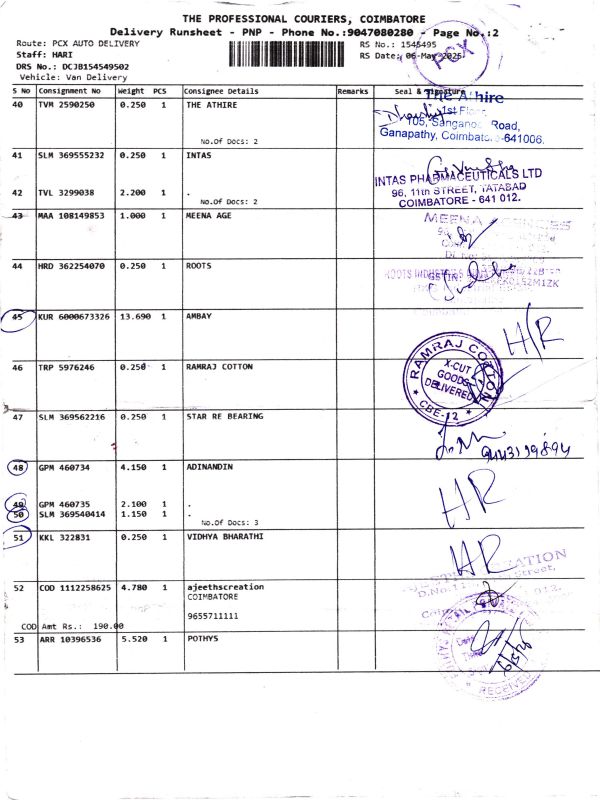 THE PROFESSIONAL COURIERS, COIMBATORE
Delivery Runsheet - PNP - Phone No.:9047080280 - Page No.:2
Route: PCX AUTO DELIVERY
Staff: HARI
DRS No.: DCJB154549502
Vehicle: Van Delivery
RS No.: 1545495
RS Date: 06-May-2025
PCX
S No Consignment No Weight PCS Consignee Details Remarks Seal & Signature
40 TVM 2590250 0.250 1 THE ATHIRE
No.Of Docs: 2
The Athire
1st Floor,
105, Sanganoor Road,
Ganapathy, Coimbatore-641006.
41 SLM 369555232 0.250 1 INTAS
42 TVL 3299038 2.200 1 .
No.Of Docs: 2
INTAS PHARMACEUTICALS LTD
96, 11th STREET, TATABAD
COIMBATORE - 641 012.
43 MAA 108149853 1.000 1 MEENA AGE
MEENA AGENCIES
44 HRD 362254070 0.250 1 ROOTS
ROOTS INDUSTRIES
GSTIN:
45 KUR 6000673326 13.690 1 AMBAY
H/R
46 TRP 5976246 0.250 1 RAMRAJ COTTON
RAMRAJ COTTON
X-CUT
GOODS
DELIVERED
CBE-12
47 SLM 369562216 0.250 1 STAR RE BEARING
48 GPM 460734 4.150 1 ADINANDIN
49 GPM 460735 2.100 1 .
50 SLM 369540414 1.150 1 .
No.Of Docs: 3
HR
51 KKL 322831 0.250 1 VIDHYA BHARATHI
HR
52 COD 1112258625 4.780 1 ajeethscreation
COIMBATORE
9655711111
COD Amt Rs.: 190.00
53 ARR 10396536 5.520 1 POTHYS
RECEIVED